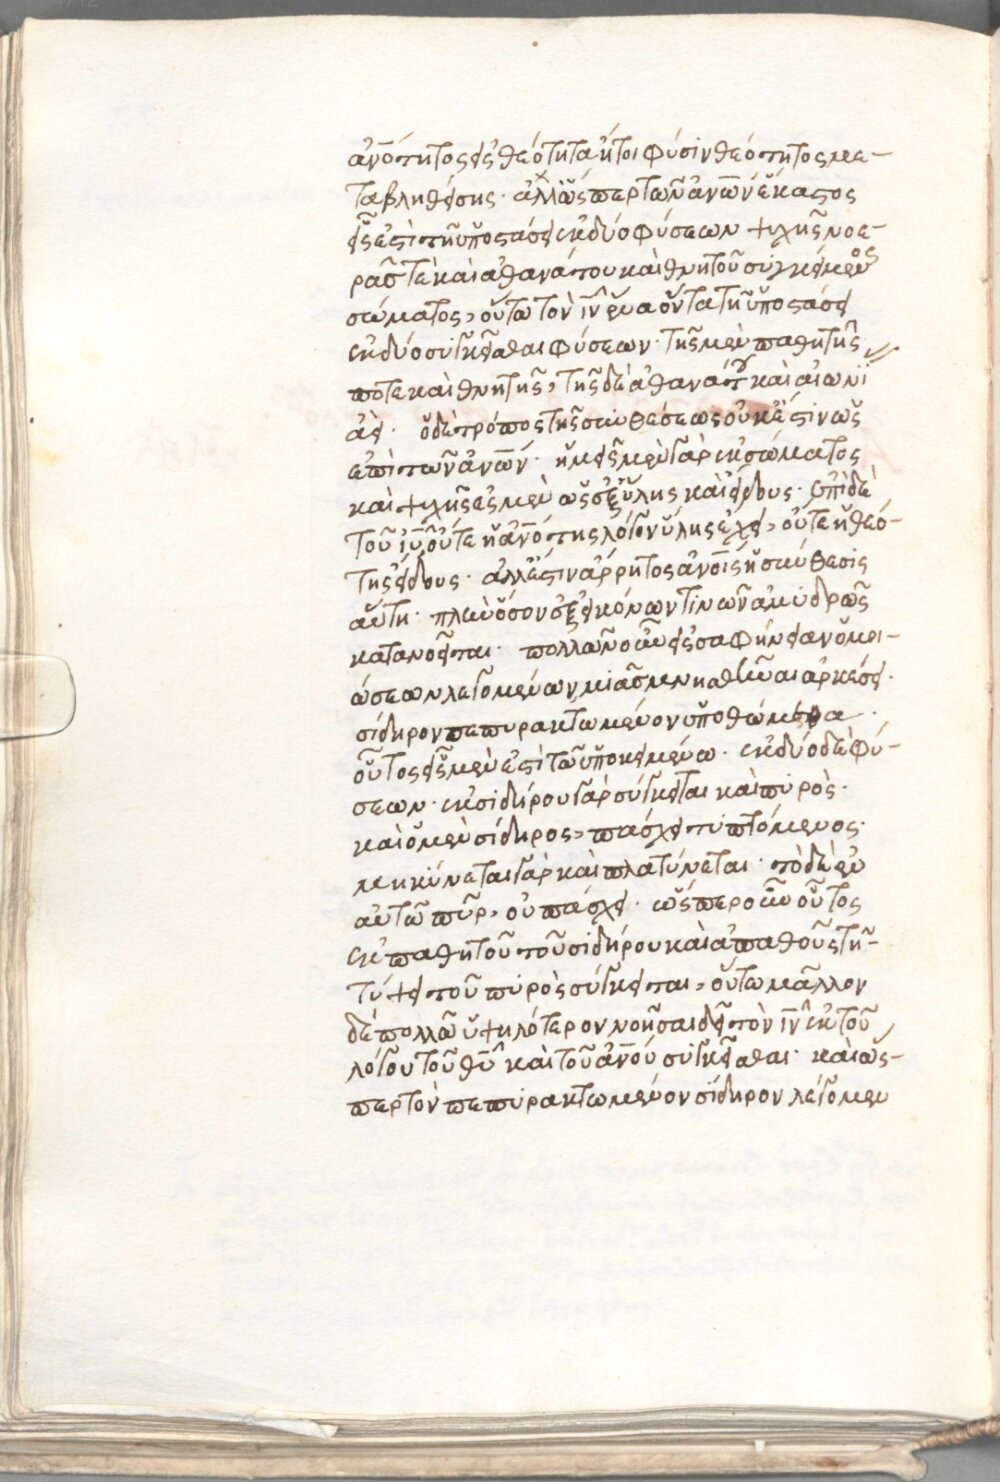 ἀνότητος εἰς θεότητα ἤτοι φύσιν θεότητος με-
ταβληθείσης· ἀλλ' ὥσπερ τῶν ἀνῶν ἕκαστος
εἷς ἐστὶ τῇ ὑποστάσει ἐκ δύο φύσεων ψυχῆς νοε-
ρᾶς τὲ καὶ ἀθανάτου καὶ θνητοῦ συγκείμενος
σώματος, οὕτω τὸν ιν ἕνα ὄντα τῇ ὑποστάσει
ἐκ δύο συγκεῖσθαι φύσεων· τῆς μὲν παθητῆς
ποτε καὶ θνητῆς, τῆς δὲ ἀθανάτου καὶ αἰωνί
ἀεί· ὁ δὲ τρόπος τῆς συνθέσεως οὐκ ἔστιν ὡς
ἐπὶ τῶν ἀνῶν· ἡμεῖς μὲν γὰρ ἐκ σώματος
καὶ ψυχῆς ἐσμὲν ὡς ἐξ ὕλης καὶ εἴδους· ἐπὶ δὲ
τοῦ ιυ οὔτε ἡ ἀνότης λόγον ὕλης ἔχει, οὔτε ἡ θεό-
της εἴδους· ἀλλ' ἔστιν ἄρρητος ἀνοις ἡ σύνθεσις
αὕτη· πλὴν ὅσον ἐξ εἰκόνων τινῶν ἀμυδρῶς
κατανοεῖται· πολλῶν οὖν εἰς σαφήνειαν ὁμοι-
ώσεων λεγομένων, μίας μνησθῆναι ἀρκέσει·
σίδηρον πεπυρακτωμένον ὑποθώμεθα·
οὗτος εἷς μὲν ἐστὶ τῷ ὑποκειμένω· ἐκ δύο δὲ φύ-
σεων· ἐκ σιδήρου γὰρ σύγκειται καὶ πυρὸς·
καὶ ὁ μὲν σίδηρος, πάσχει τυπτόμενος·
μηκύνεται γὰρ καὶ πλατύνεται· τὸ δὲ ἐν
αὐτῶ πῦρ, οὐ πάσχει· ὥσπερ οὖν οὗτος
ἐκ παθητοῦ τοῦ σιδήρου καὶ ἀπαθοῦς τῆ
τύψει τοῦ πυρὸς σύγκειται, οὕτω μᾶλλον
δὲ πολλῶ ὑψηλότερον νοῆσαι δεῖ τὸν ιν ἐκ τοῦ
λόγου τοῦ θυ καὶ τοῦ ἀνου συγκεῖσθαι· καὶ ὥσ-
περ τὸν πεπυρακτωμένον σίδηρον λέγομεν